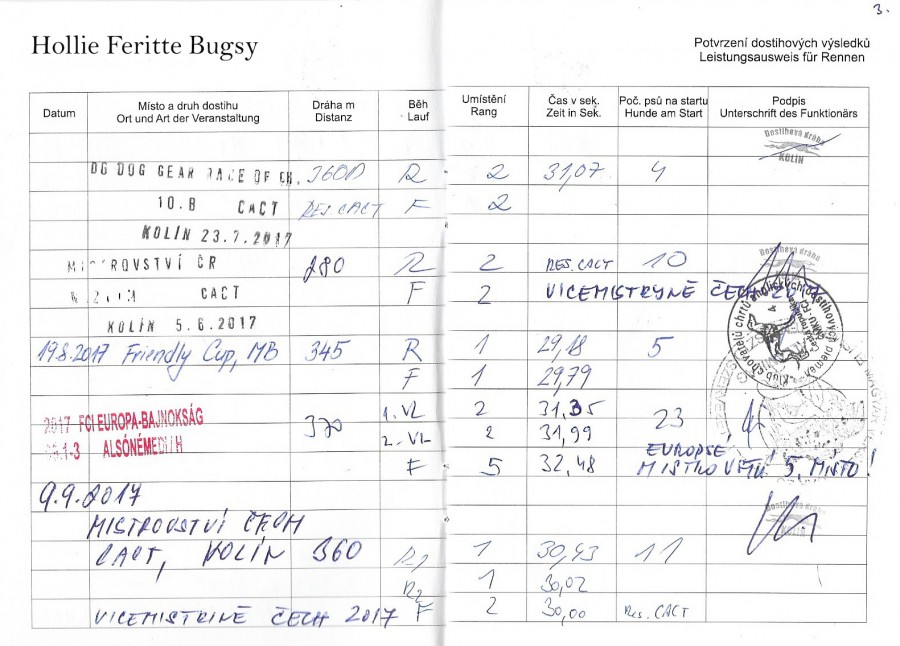 3.
Hollie Feritte Bugsy
Potvrzení dostihových výsledků
Leistungsausweis für Rennen
Datum
Místo a druh dostihu
Ort und Art der Veranstaltung
Dráha m
Distanz
Běh
Lauf
Umístění
Rang
Čas v sek.
Zeit in Sek.
Poč. psů na startu
Hunde am Start
Podpis
Unterschrift des Funktionärs
Dostihová dráha
KOLÍN
DG DOG GEAR RACE OF CH. 360 R 2 31,07 4
10.8 CACT RES. CACT F 2
KOLÍN 23.7.2017
MISTROVSTVÍ ČR 280 R 2 RES. CACT 10
CACT F 2 VICEMISTRYNĚ ČECH
KOLÍN 5.6.2017
Dostihová dráha
19.8.2017 Friendly Cup, MB 345 R 1 29,18 5
F 1 29,79
2017 FCI EUROPA-BAJNOKSÁG 370 1. VL 2 31,35 23
1-3 ALSÓNÉMEDI H 2. VL 2 31,99
F 5 32,48 EUROPSÉ MISTROVSTVÍ 5. MÍSTO!
9.9.2017
MISTROVSTVÍ ČECH
CACT, KOLÍN 360 R1 1 30,43 11
R2 1 30,02
VICEMISTRINĚ ČECH 2017 F 2 30,00 Res. CACT
Dostihová dráha